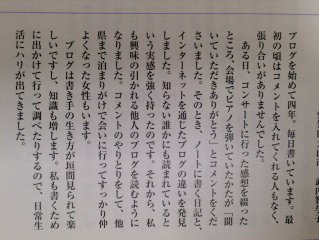 ブログを始めて四年。毎日書いています。最
初の頃はコメントを入れてくれる人もなく、
張り合いがありませんでした。
ある日、コンサートに行った感想を綴った
ところ、会場でピアノを弾いていたかたが「聞
いていただきありがとう」とコメントをくだ
さいました。そのとき、ノートに書く日記と、
インターネットを通じたブログの違いを発見
しました。知らない誰かにも読まれていると
いう実感を強く持ったのです。それから、私
も興味の引かれる他人のブログを読むように
なりました。コメントのやりとりをして、他
県まで泊まりがけで会いに行ってすっかり仲
よくなった女性もいます。
ブログは書き手の生き方が垣間見られて楽
しいですし、知識も増します。私も書くため
に出かけて行って調べたりするので、日常生
活にハリが出てきました。